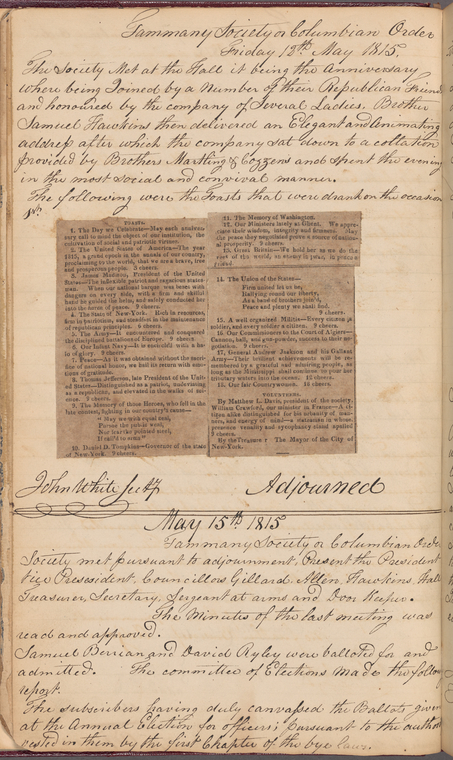 Tammany Society or Columbian Order
Friday 12th May 1815.
The Society Met at the Hall it being the Anniversary
where being Joined by a Number of their Republican Friends
and honoured by the company of Several Ladies. Brother
Samuel Hawkins then delivered an Elegant and Animating
address after which the company sat down to a collation
provided by Brothers Martling & Cozzens and spent the evening
in the most social and convivial manner.
The following were the Toasts that were drank on the occasion
TOASTS.
1. The Day we Celebrate—May each anniver-
sary call to mind the object of our institution, the
cultivation of social and patriotic virtues.
2. The United States of America—The year
1815, a grand epoch in the annals of our country,
proclaiming to the world, that we are a brave, free
and prosperous people. 3 cheers.
3. James Madison, President of the United
States—The inflexible patriot and enlightened states-
man. When our national barque was beset with
dangers on every side, with a firm and skilful
hand he guided the helm, and safely conducted her
into the haven of peace. 9 cheers.
4. The State of New-York. Rich in resources,
firm in patriotism, and steadfast in the maintenance
of republican principles. 6 cheers.
5. The Army—It encountered and conquered
the disciplined battalions of Europe. 9 cheers
6. Our Infant Navy—It is encircled with a ha-
lo of glory. 9 cheers.
7. Peace—As it was obtained without the sacri-
fice of national honor, we hail its return with emo-
tions of gratitude.
8. Thomas Jefferson, late President of the Unit-
ed States—Distinguished as a patriot, undeviating
as a republican, and elevated in the walks of sci-
ence. 9 cheers.
9. The Memory of those Heroes, who fell in the
late contest, fighting in our country's cause—
" May no work equal
Pursue the public weal,
Nor fear the pointed steel,
If call'd to arms"
10. Daniel D. Tompkins—Governor of the state
of New-York. 9 cheers.
11. The Memory of Washington.
12. Our Ministers lately at Ghent. We appre-
ciate their wisdom, integrity and firmness.
the peace they negotiated prove a source of nation-
al prosperity. 9 cheers.
13. Great Britain—We hold her as we do the
rest of the world, an enemy in war, in peace a
friend.
14. The Union of the States—
Firm united let us be,
Rallying round our liberty,
As a band of brothers join'd,
Peace and plenty we shall find.
9 cheers.
15. A well organized Militia—Every citizen a
soldier, and every soldier a citizen. 9 cheers.
16. Our Commissioners to the Court of Algiers—
Cannon, ball, and gun-powder, success to their ne-
gotiation. 9 cheers.
17. General Andrew Jackson and his Gallant
Army—Their brilliant achievements will be re-
membered by a grateful and admiring people, as
long as the Mississippi shall continue to pour her
tributary waters into the ocean. 18 cheers.
18. Our fair Countrywomen. 18 cheers.
VOLUNTEERS.
By Matthew L. Davis, president of the society.
William Crawford, our minister in France—A ci-
tizen alike distinguished for his urbanity of man-
ners, and energy of mind—a statesman in whose
presence venality and sycophancy stand appalled
9 cheers.
By the Treasurer The Mayor of the City of
New-York.
John White Secty Adjourned
May 15th 1815
Tammany Society or Columbian Order
Society met pursuant to adjournment, Present the President
Vice President, Councillors Gillard. Allen, Hawkins,
Treasurer, Secretary, Sergeant at arms and Door Keeper.
The Minutes of the last meeting was
read and approved.
Samuel Berrian and David Ryley were balloted for and
admitted. The committee of Elections made the follow
report.
The subscribers having duly canvassed the Ballots given
at the Annual Election for officers; pursuant to the
vested in them by the first Chapter of the bye Laws.